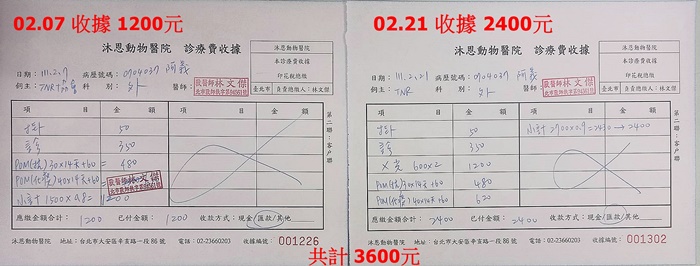 02.07 收據 1200元
沐恩動物醫院 診療費收據
沐恩動物醫院
本診療費收據
印花稅總繳
臺北市 負責人姓名：林文傑
日期：111.2.7 病歷號碼：0904037 阿義
飼主：TNR協會 科別：外 醫師：
獸醫師林文傑
項 目 金 額 項 目 金 額
掛 50
診 350
POM(抗)30x14天+60= 480
POM(化)40x14天+60=
小計1500x0.8= 1200
應繳金額合計：1200 已付金額：1200 收款方式：現金/匯款/其他
沐恩動物醫院 地址：台北市大安區辛亥路一段86號 電話：02-23660203 收據編號：001226
第二聯：客戶聯
02.21 收據 2400元
沐恩動物醫院 診療費收據
沐恩動物醫院
本診療費收據
印花稅總繳
臺北市 負責人姓名：林文傑
日期：111.2.21 病歷號碼：0904037 阿義
飼主：TNR 科別：外 醫師：
獸醫師林文傑
項 目 金 額 項 目 金 額
掛 50 小計2700x0.9=2430→2400
診 350
X光 600x2 1200
POM(抗)30x14天+60 480
POM(化)40x14天+60 620
應繳金額合計：2400 已付金額：2400 收款方式：現金/匯款/其他
沐恩動物醫院 地址：台北市大安區辛亥路一段86號 電話：02-23660203 收據編號：001302
第二聯：客戶聯
共計 3600元